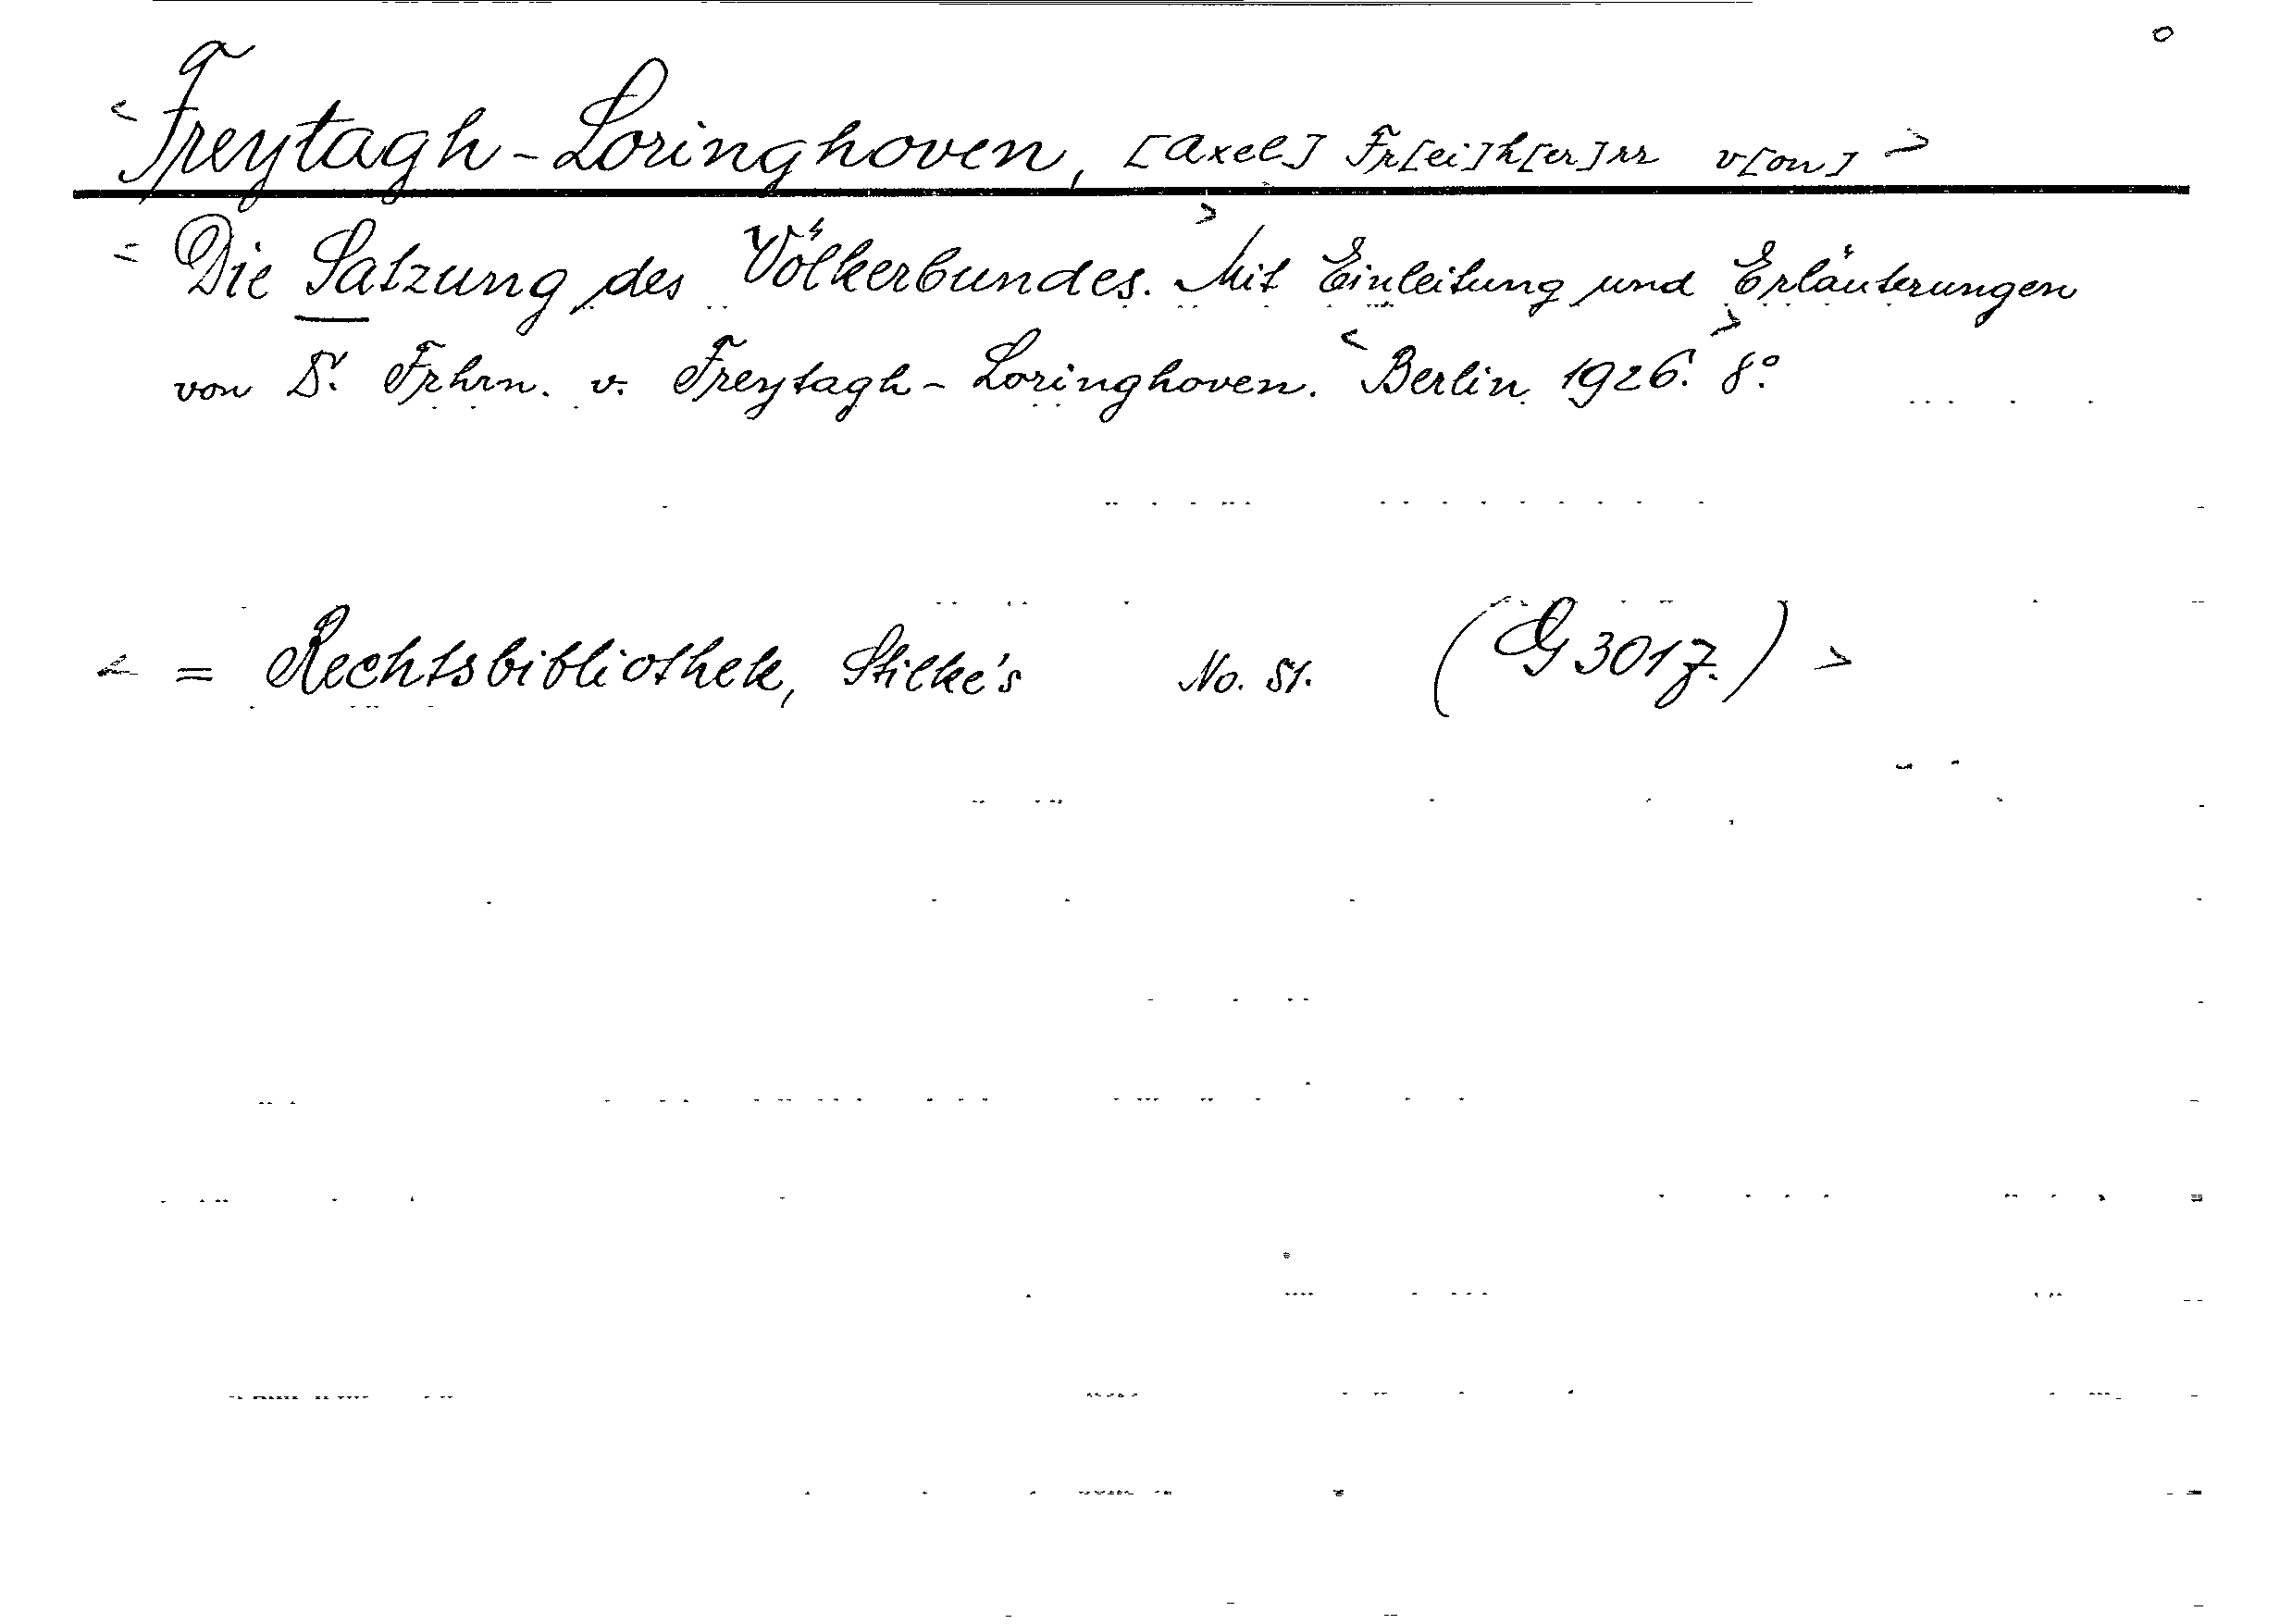 <Freytagh-Loringhoven, [Axel] Fr[ei]h[er]rr v[on]>
= Die Satzung des Völkerbundes.> Mit Einleitung und Erläuterungen
von Dr. Frhrn. v. Freytagh-Loringhoven. <Berlin 1926.> 8°
< = Rechtsbibliothek, Stilke's No. 51. (G 301 z.) >